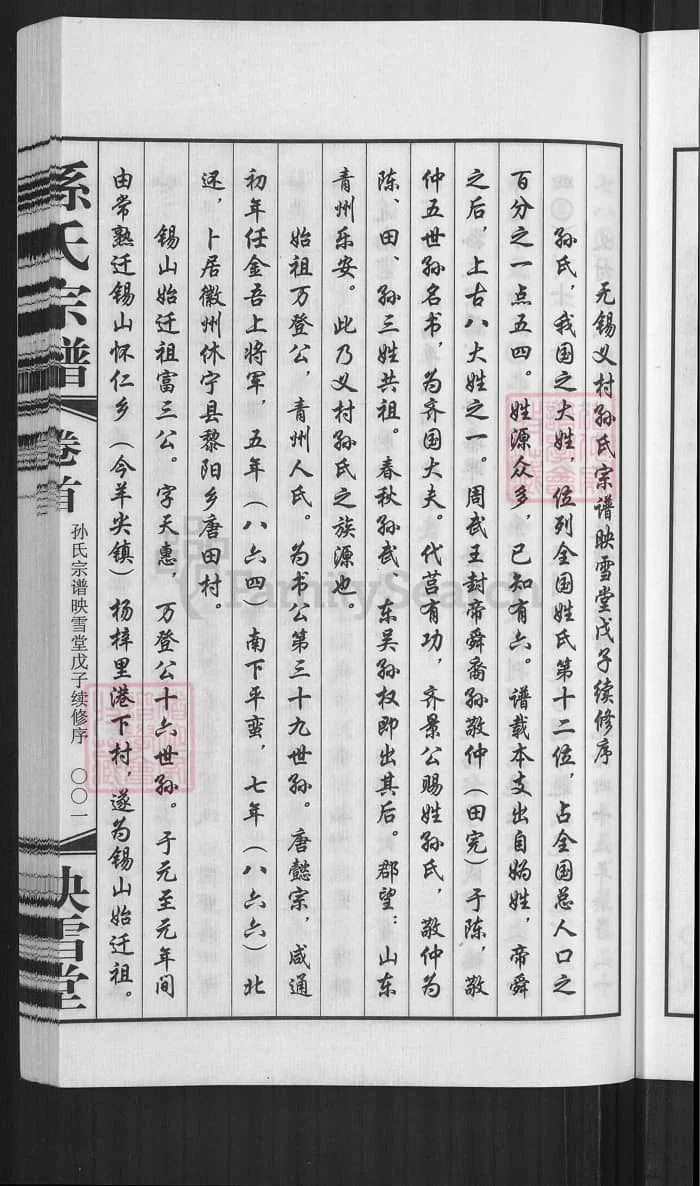 无锡义村孙氏宗谱映雪堂戊子续修序
孙氏，我国之大姓，位列全国姓氏第十二位，占全国总人口之
百分之一点五四。姓源众多，已知有六。谱载本支出自妫姓，帝舜
之后，上古八大姓之一。周武王封帝舜裔孙敬仲（田完）于陈，敬
仲五世孙名书，为齐国大夫。代莒有功，齐景公赐姓孙氏，敬仲为
陈、田、孙三姓共祖。春秋孙武，东吴孙权即出其后。郡望：山东
青州乐安。此乃义村孙氏之族源也。
始祖万登公，青州人氏。为书公第三十九世孙。唐懿宗，咸通
初年任金吾上将军，五年（八六四）南下平蛮，七年（八六六）北
还，卜居徽州休宁县黎阳乡唐田村。
锡山始迁祖富三公。字天惠，万登公十六世孙。于元至元年间
由常熟迁锡山怀仁乡（今羊尖镇）杨梓里港下村，遂为锡山始迁祖。
孫氏宗譜
卷首
孙氏宗谱映雪堂戊子续修序
〇〇一
映雪堂
FamilySearch